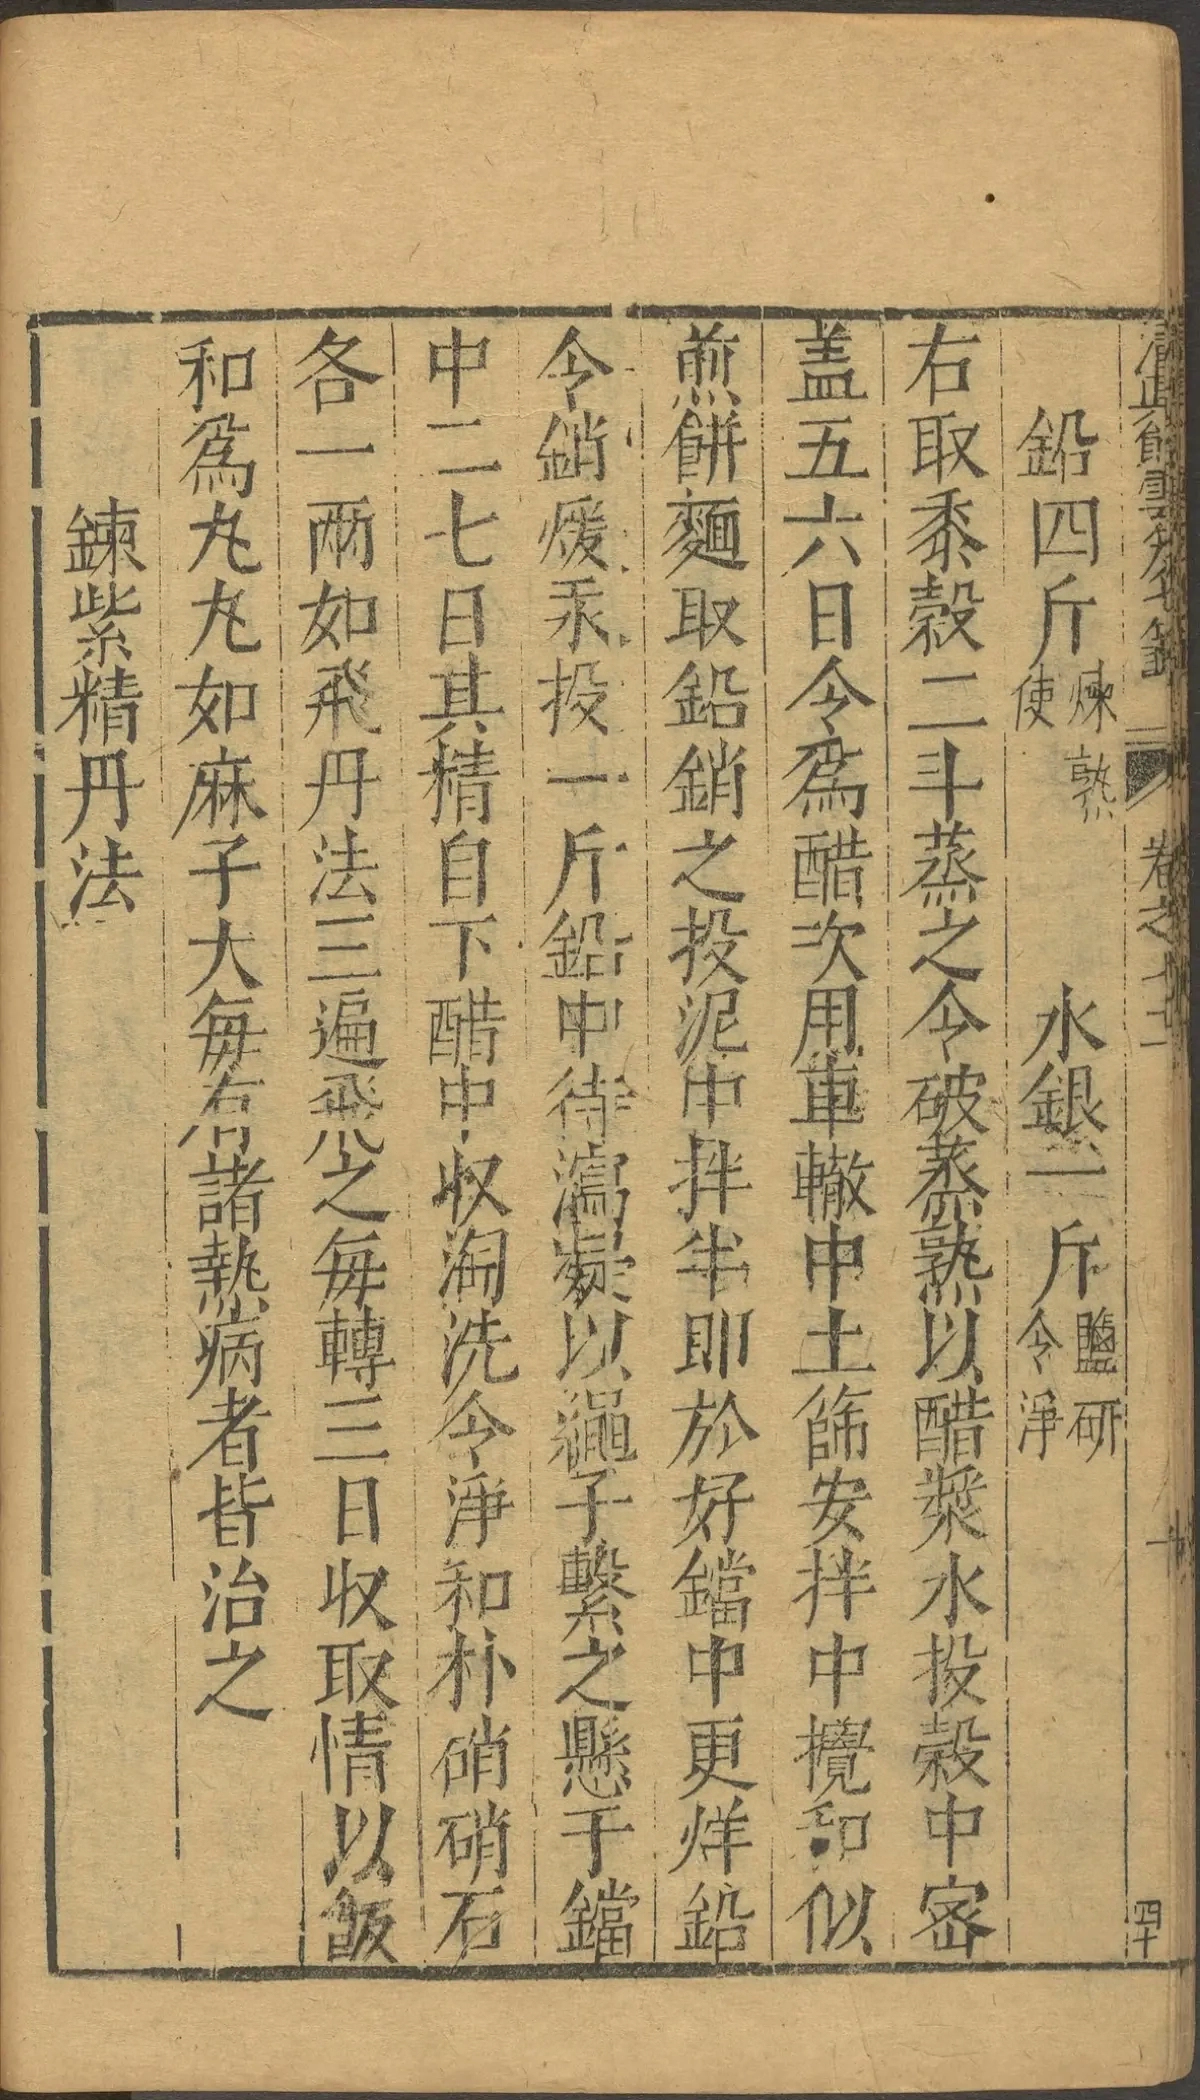 清眞館雲笈七籤 卷之七十一 四十
鉛四斤煉熟使 水銀一斤鹽研令淨
右取黍穀二斗蒸之令破蒸熟以醋漿水投穀中密
盖五六日令爲醋次用車轍中土篩安拌中攪和似
煎餅麵取鉛銷之投泥中拌半即於好鐺中更烊鉛
令銷煖汞投一斤鉛中待瀉凝以繩子繫之懸于鐺
中二七日其精自下醋中収淘洗令淨和朴硝硝石
各一兩如飛丹法三遍飛之每轉三日收取情以飯
和爲丸丸如麻子大每有諸熱病者皆治之
鍊紫精丹法